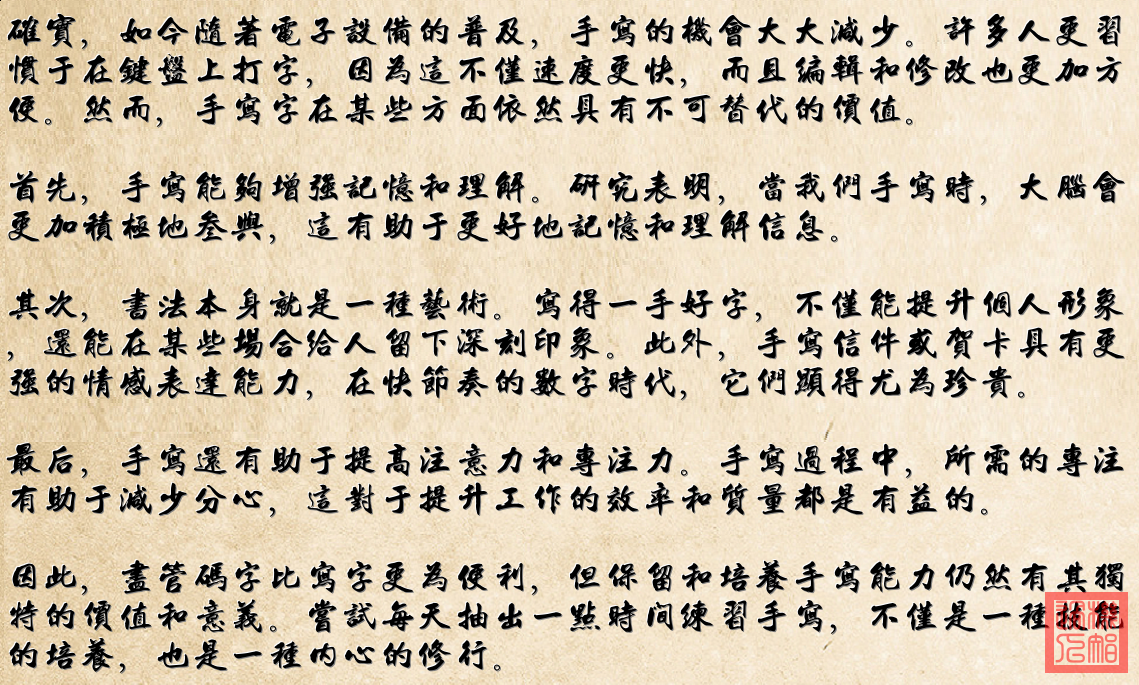 確實，如今隨著電子設備的普及，手寫的機會大大減少。許多人更習
慣于在鍵盤上打字，因為這不僅速度更快，而且編輯和修改也更加方
便。然而，手寫字在某些方面依然具有不可替代的價值。
首先，手寫能夠增強記憶和理解。研究表明，當我們手寫時，大腦會
更加積極地叁與，這有助于更好地記憶和理解信息。
其次，書法本身就是一種藝術。寫得一手好字，不僅能提升個人形象
，還能在某些場合給人留下深刻印象。此外，手寫信件或賀卡具有更
強的情感表達能力，在快節奏的數字時代，它們顯得尤為珍貴。
最后，手寫還有助于提高注意力和專注力。手寫過程中，所需的專注
有助于減少分心，這對于提升工作的效率和質量都是有益的。
因此，盡管碼字比寫字更為便利，但保留和培養手寫能力仍然有其獨
特的價值和意義。嘗試每天抽出一點時间練習手寫，不僅是一種技能
的培養，也是一種内心的修行。